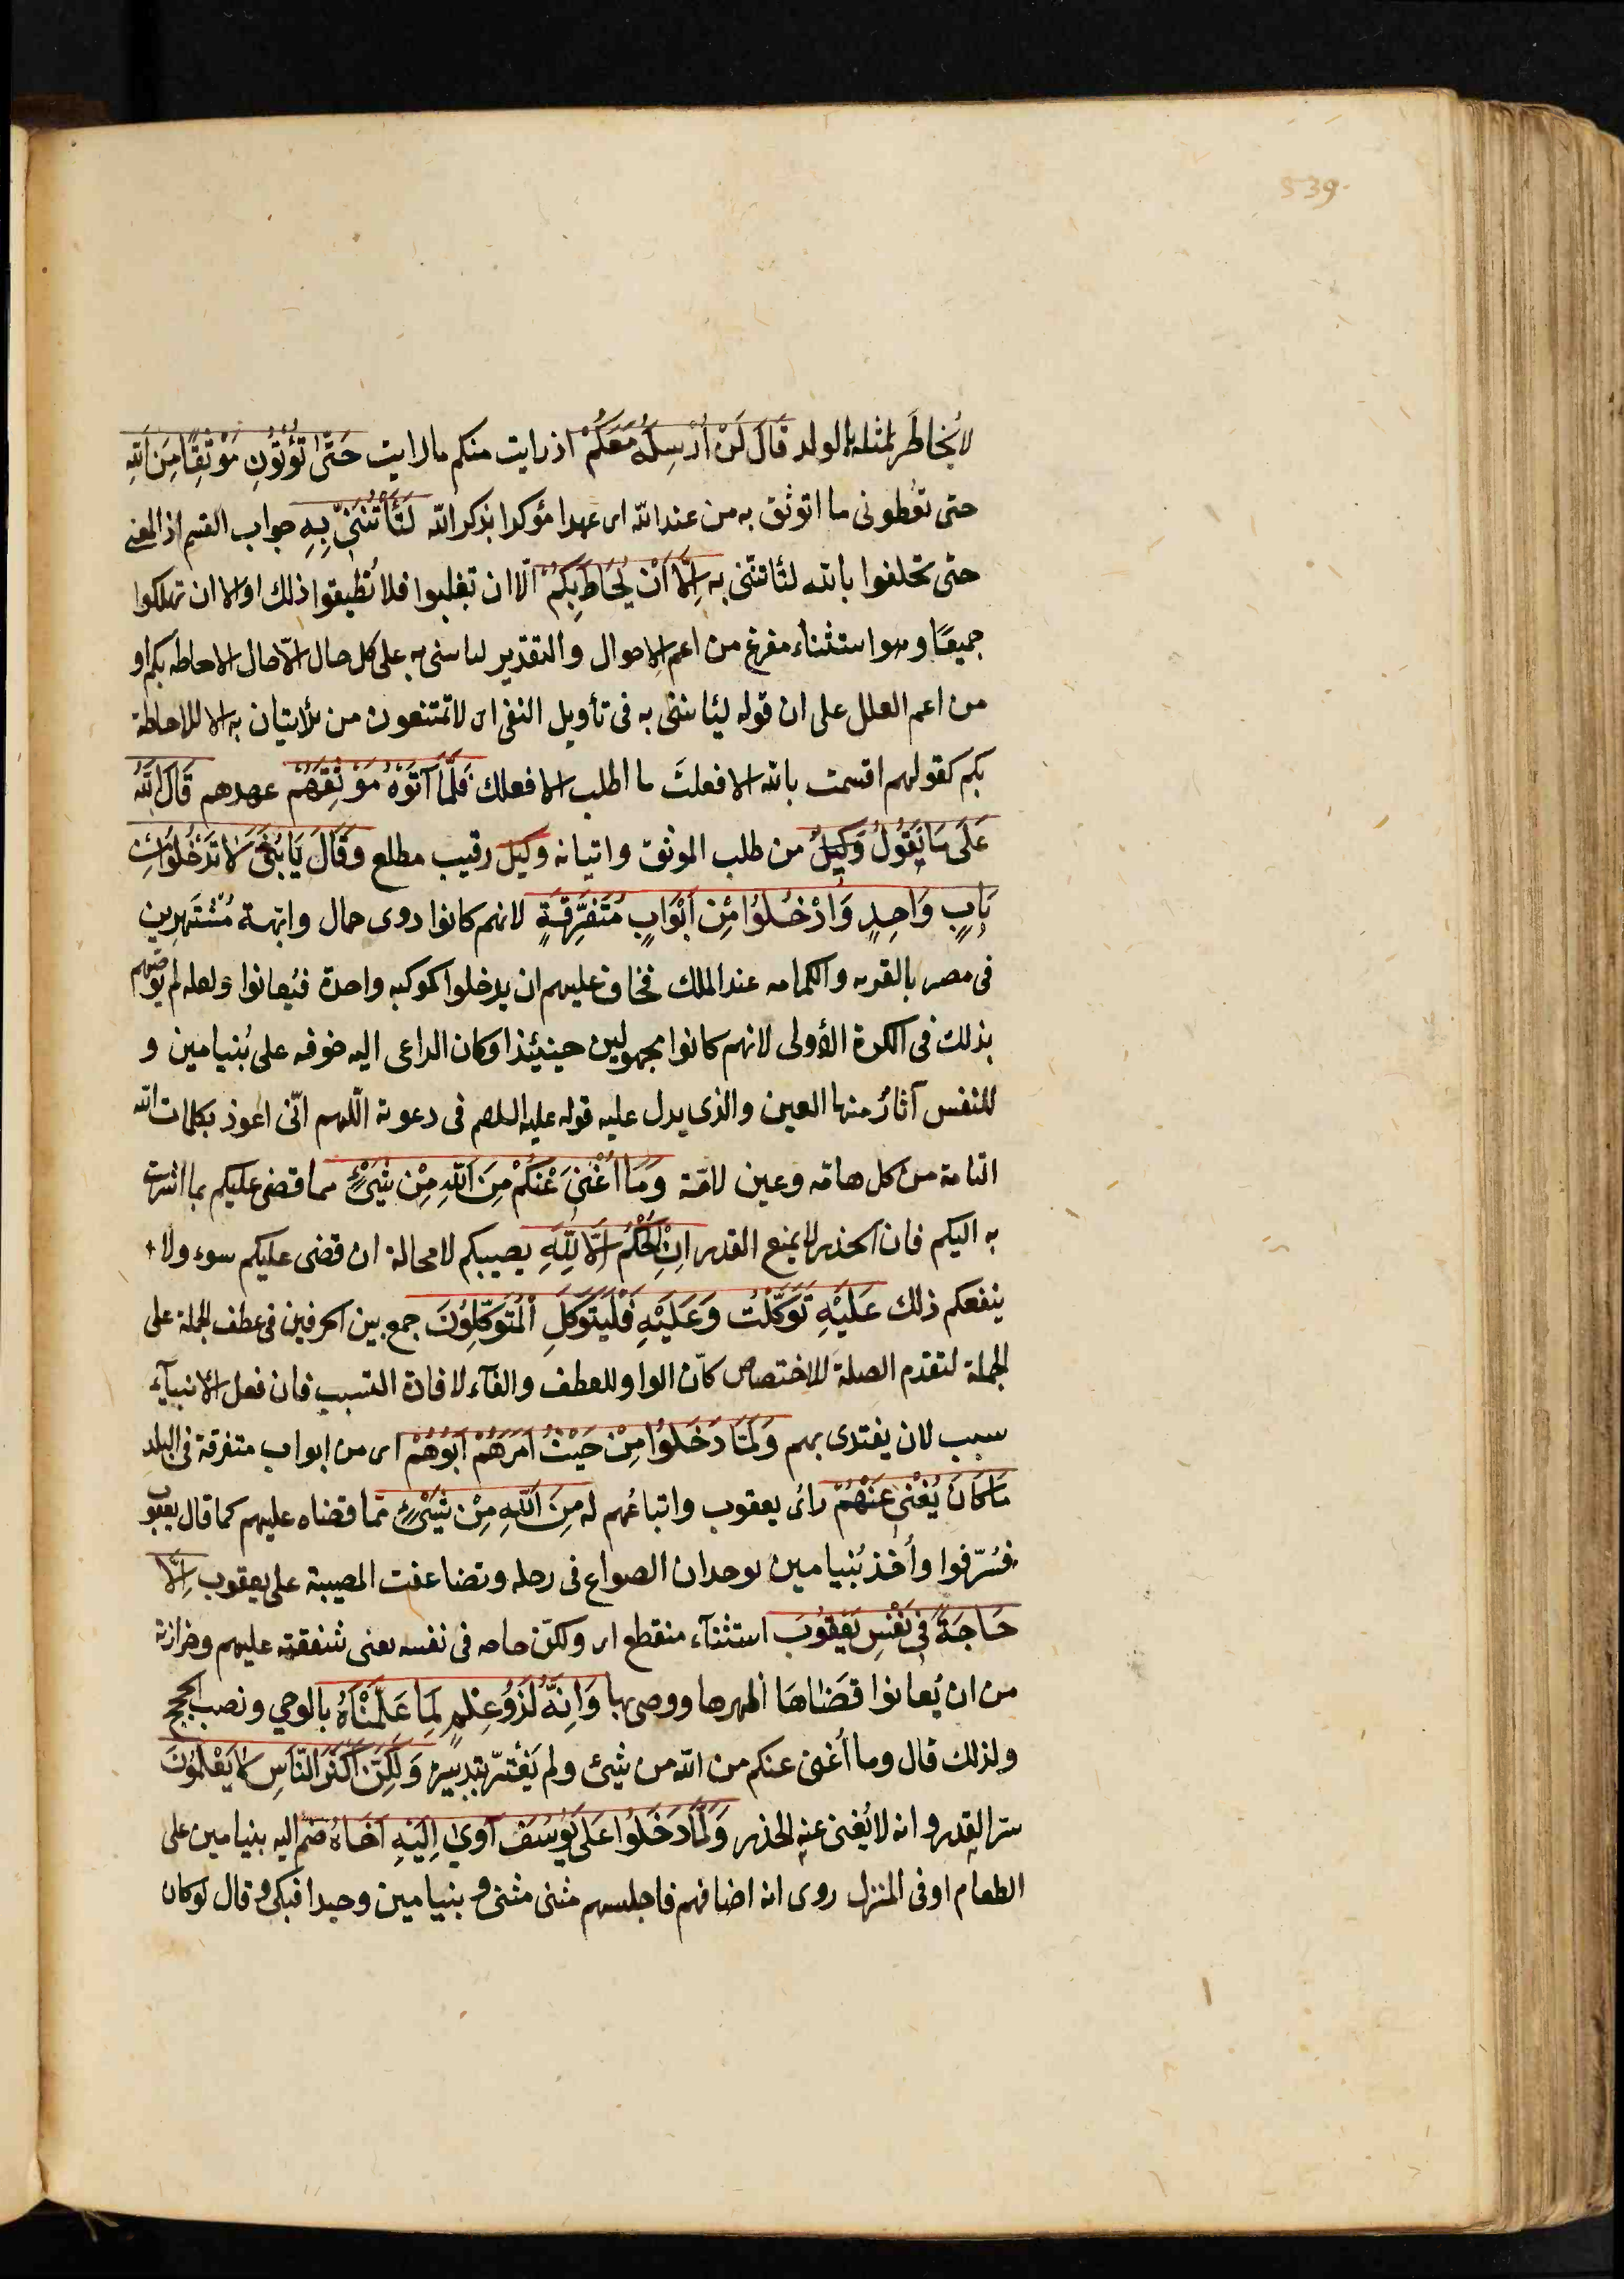 539
لا يُخاطَر لمثله بالولد قَالَ لَنْ اُرْسِلَهُ مَعَكُمْ اذ رايت منكم ما رايت حَتّٰى تُؤْتُونِ مَوْثِقًا مِنَ اللّٰهِ
حتى تعُطونى ما اتوثق به من عند اللّه اى عهدا مؤكدا بذكر اللّه لَتَأْتُنَّنِى بِهِ جواب القسم اذ المعنى
حتى تحلفوا بالله لتأتننى به اِلَّا اَنْ يُحَاطَ بِكُمْ الّا ان تغلبوا فلا تُطيقوا ذلك او الا ان تهلكوا
جميعًا وهو استثناء مفرغ من اعم الاحوال والتقدير لتاتننى به على كل حال الّا حال الاحاطه بكم او
من اعم العلل على ان قوله لتاتننى به فى تأويل النفى اى لا تمتنعون من الاتيان به الا للاحاطة
بكم كقولهم اقسمت بالله الا فعلتَ اى ما اطلب الا فعلك فَلَمَّا آتَوْهُ مَوْثِقَهُمْ عهدهم قَالَ اللّٰهُ
عَلٰى مَا نَقُولُ وَكِيلٌ من طلب الموثق واتيانه وكيل رقيب مطلع وَقَالَ يَا بَنِىَّ لَا تَدْخُلُوا مِنْ
بَابٍ وَاحِدٍ وَادْخُلُوا مِنْ اَبْوَابٍ مُتَفَرِّقَةٍ لانهم كانوا ذوى جمال وابّهة مُشْتَهِرِين
فى مصر بالقربه والكرامه عند الملك فخاف عليهم ان يدخلوا كوكبه واحدة فيُعانوا ولعله لم يوصّهم
بذلك فى الكرة الأولى لانهم كانوا مجهولين حينيئذ او كان الداعى اليه خوفه على بُنيامين و
للنفس آثارٌ منها العين والذى يدل عليه قوله عليه السلام فى دعوته اللّهم انّى اعوذ بكلمات اللّه
التامة من كل هامّه وعين لامّة وَمَا اُغْنِى عَنْكُمْ مِنَ اللّٰهِ مِنْ شَىْءٍ مما قضى عليكم بما اشرت
به اليكم فان الحذر لا يمنع القدر اِنِ الْحُكْمُ اِلَّا لِلّٰهِ يصيبكم لا محالة ان قضى عليكم سوء ولا
ينفعكم ذلك عَلَيْهِ تَوَكَّلْتُ وَعَلَيْهِ فَلْيَتَوَكَّلِ الْمُتَوَكِّلُونَ جمع بين الحرفين فى عطف الجملة على
الجملة لتقدم الصلة للاختصاص كأنّ الواو للعطف والفآء لافادة التسبب فان فعل الانبيآء
سبب لان يقتدى بهم وَلَمَّا دَخَلُوا مِنْ حَيْثُ اَمَرَهُمْ اَبُوهُمْ اى من ابواب متفرقة فى البلد
مَا كَانَ يُغْنِى عَنْهُمْ رائ يعقوب واتباعُهم له مِنَ اللّٰهِ مِنْ شَىْءٍ ممّا قضاه عليهم كما قال يعقوب
فسُرّقوا وأُخذ بُنيامين بوجدان الصواع فى رحله وتضاعفت المصيبة على يعقوب اِلَّا
حَاجَةً فِى نَفْسِ يَعْقُوبَ استثنآء منقطع اى ولكن حاجه فى نفسه يعنى شفقته عليهم وحزازته
من ان يُعانوا قَضٰاهَا اظهرها ووصى بها وَاِنَّهُ لَذُو عِلْمٍ لِمَا عَلَّمْنَاهُ بالوحي ونصب الحجج
ولذلك قال وما أُغنى عنكم من اللّه من شيئ ولم يَغْترّ بتدبيره وَلٰكِنَّ اَكْثَرَ النَّاسِ لَا يَعْلَمُونَ
سرّ القدر وانه لا يُغنى عنه الحذر وَلَمَّا دَخَلُوا عَلٰى يُوسُفَ آوٰى اِلَيْهِ اَخَاهُ ضمّ اليه بنيامين على
الطعام او فى المنزل روى انه اضافهم فاجلسهم مثنى مثنى و بنيامين وحيدا فبكى وقال لو كان